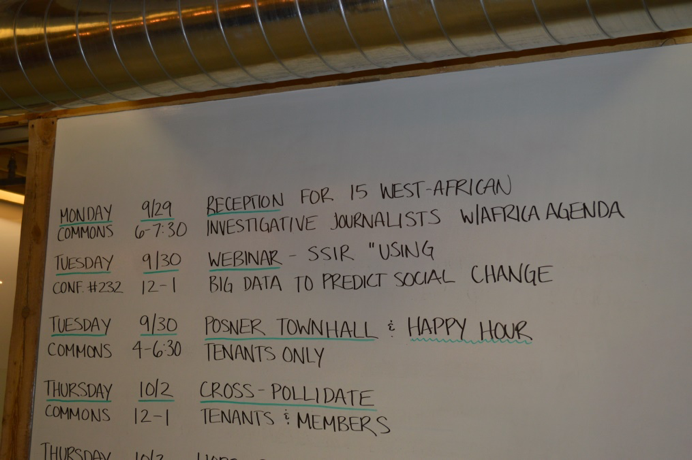 MONDAY 9/29 RECEPTION FOR 15 WEST-AFRICAN
COMMONS 6-7:30 INVESTIGATIVE JOURNALISTS W/AFRICA AGENDA
TUESDAY 9/30 WEBINAR - SSIR "USING
CONF #232 12-1 BIG DATA TO PREDICT SOCIAL CHANGE
TUESDAY 9/30 POSNER TOWNHALL & HAPPY HOUR
COMMONS 4-6:30 TENANTS ONLY
THURSDAY 10/2 CROSS-POLLIDATE
COMMONS 12-1 TENANTS & MEMBERS
THURSDAY 10/2